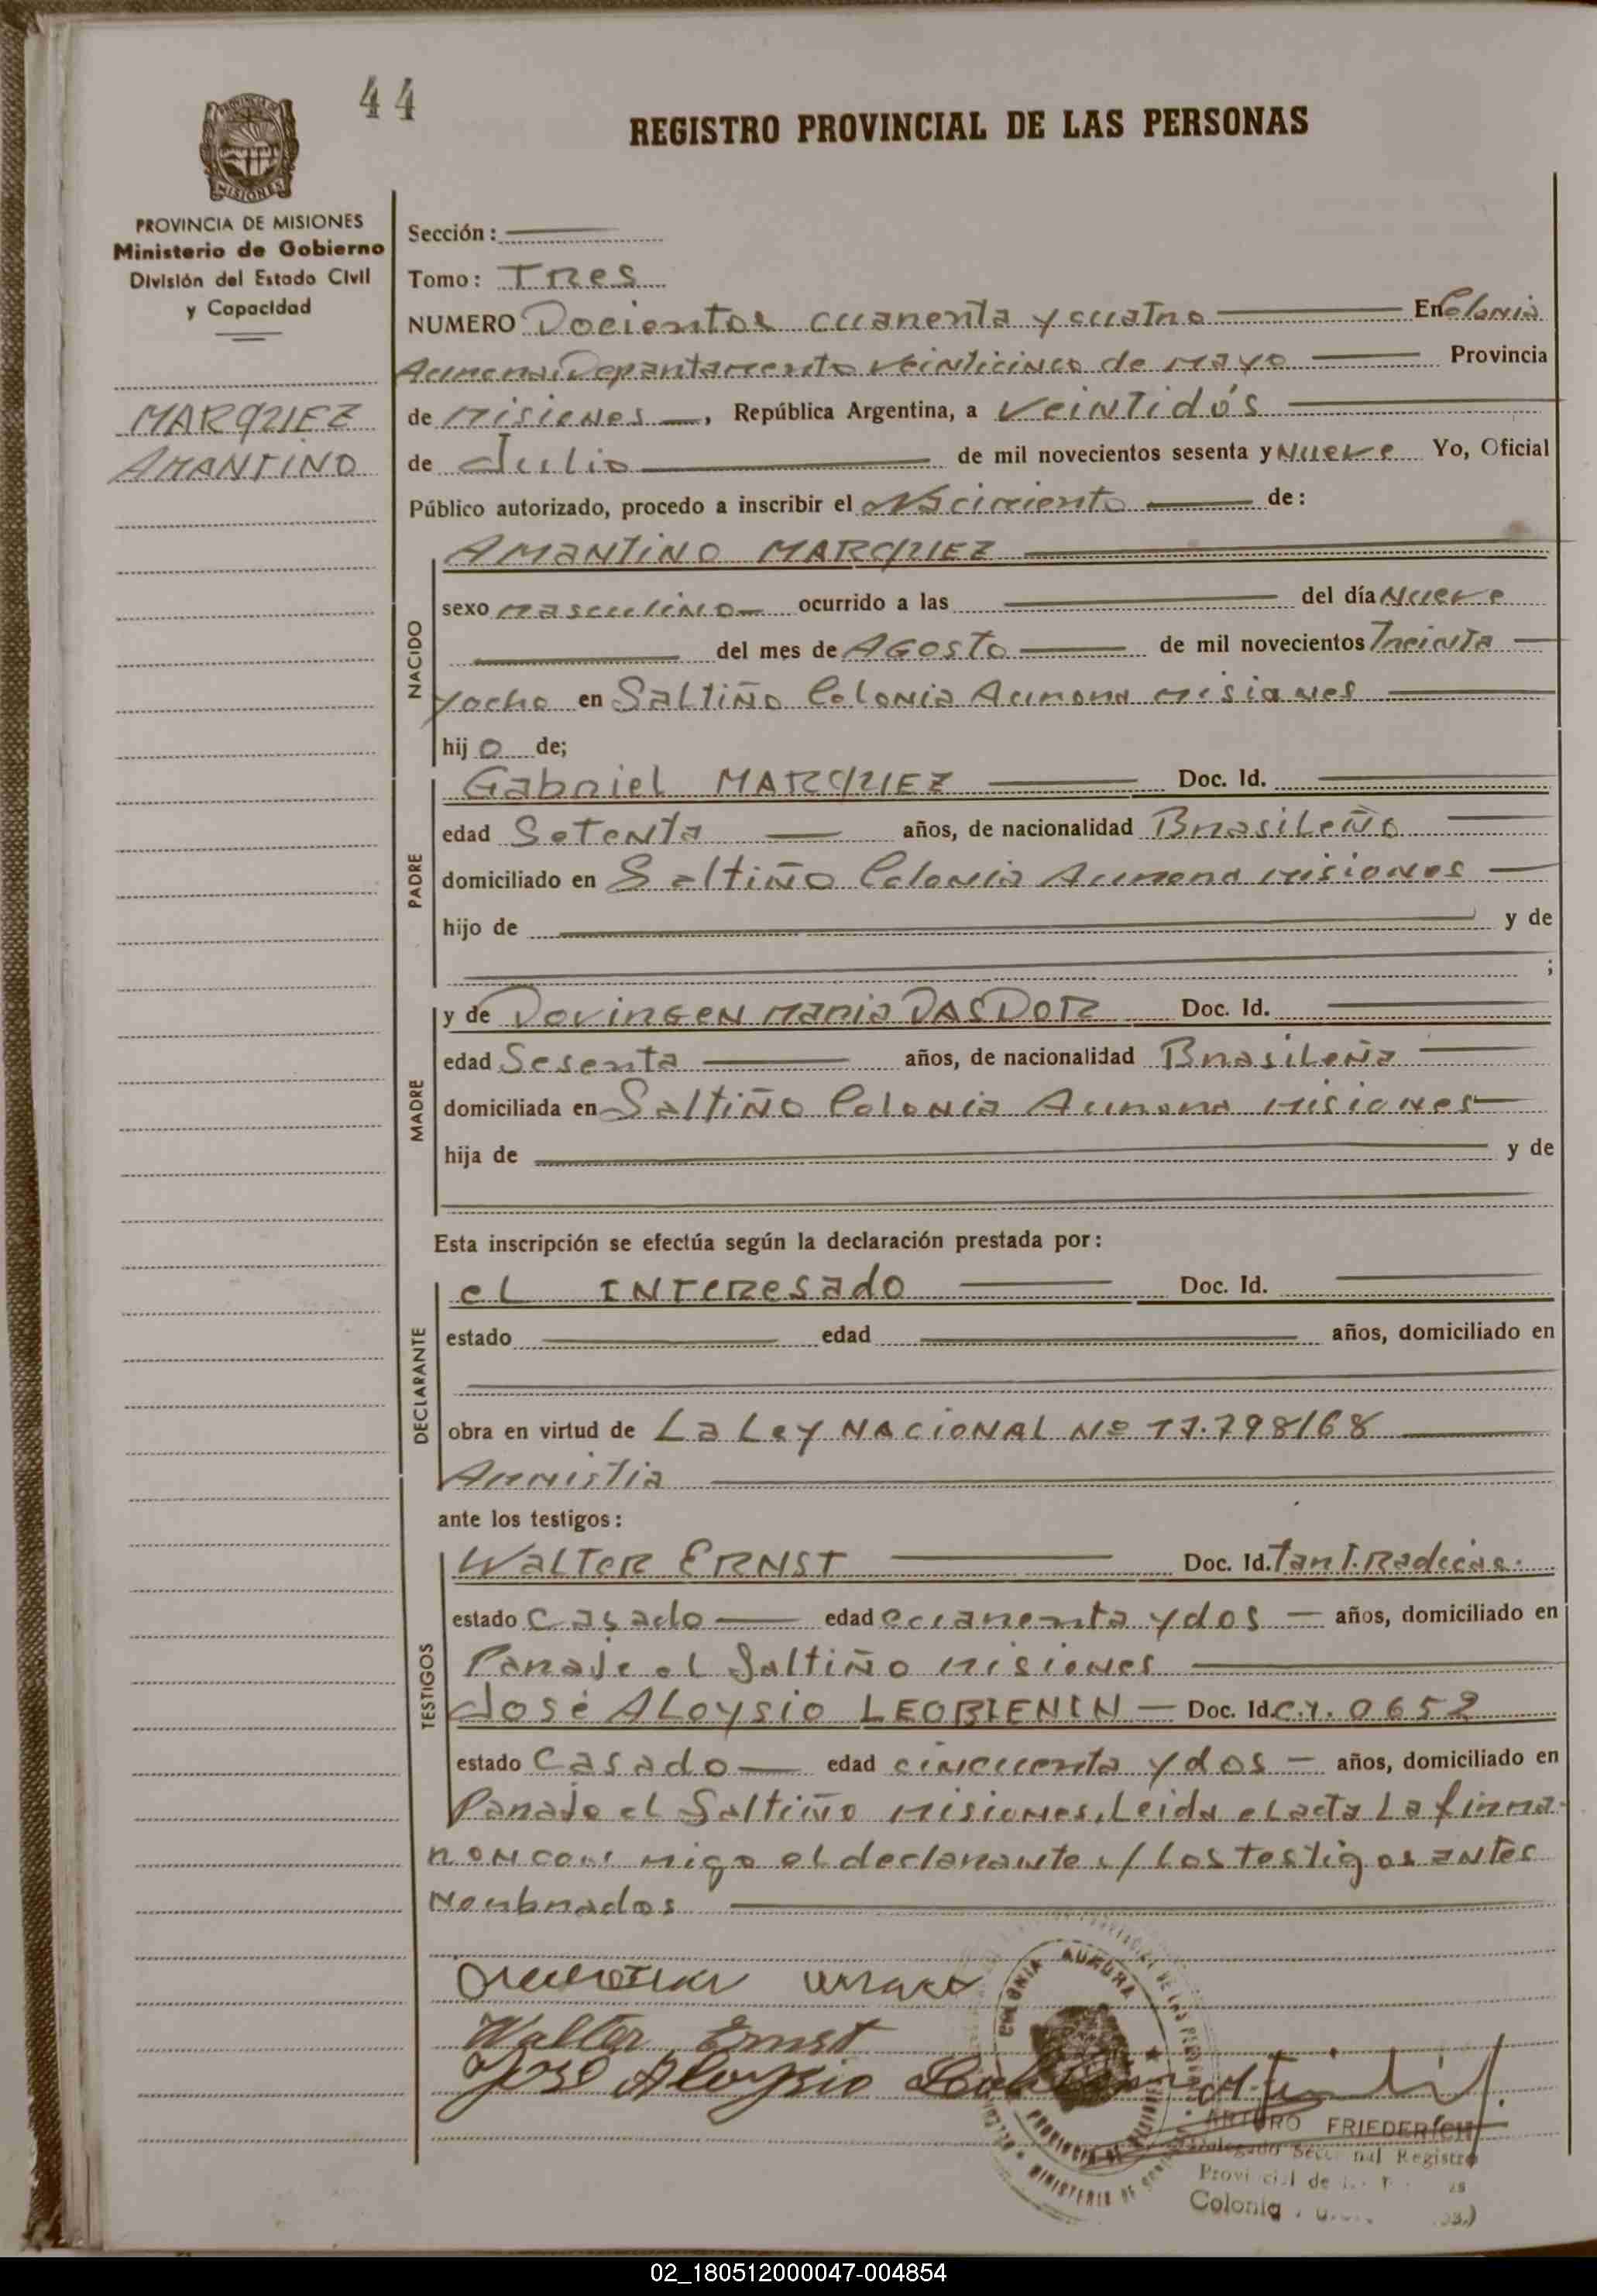 44
REGISTRO PROVINCIAL DE LAS PERSONAS
MISIONES
PROVINCIA DE MISIONES
Ministerio de Gobierno
División del Estado Civil
y Capacidad
MARQUEZ
AMANTINO
Sección:
Tomo: Tres
NUMERO Docientos cuarenta y cuatro En Colonia
Aurora, Departamento Veinticinco de Mayo Provincia
de Misiones, República Argentina, a Veintidós
de Julio de mil novecientos sesenta y Nueve Yo, Oficial
Público autorizado, procedo a inscribir el Nacimiento de:
NACIDO
AMANTINO MARQUEZ
sexo masculino ocurrido a las del día Nueve
del mes de AGOSTO de mil novecientos Treinta
y ocho en Saltiño Colonia Aurora Misiones
hijo de;
PADRE
Gabriel MARQUEZ Doc. Id.
edad Setenta años, de nacionalidad Brasileño
domiciliado en Saltiño Colonia Aurora Misiones
hijo de y de
;
MADRE
y de Dovirgen Maria DASDOR Doc. Id.
edad Sesenta años, de nacionalidad Brasileña
domiciliada en Saltiño Colonia Aurora Misiones
hija de y de
Esta inscripción se efectúa según la declaración prestada por:
DECLARANTE
el INTERESADO Doc. Id.
estado edad años, domiciliado en
obra en virtud de La Ley NACIONAL Nº 17.798/68
Amnistia
ante los testigos:
TESTIGOS
WALTER ERNST Doc. Id. Tan T. Radicas.
estado Casado edad cuarenta y dos años, domiciliado en
Paraje el Saltiño Misiones
José ALoysio LEOBLENIN Doc. Id. C.Y. 0652
estado Casado edad cincuenta y dos años, domiciliado en
Paraje el Saltiño Misiones. Leida el acta La firma-
ron con migo el declarante y/ Los testigos antes
Nombrados
Walter Ernst
José Aloysio
COLONIA AURORA
ARTURO FRIEDERICH
Registro
Colonia
02_180512000047-004854